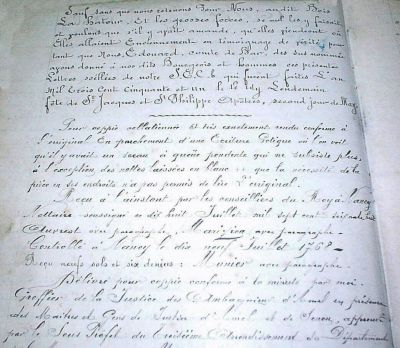 Sauf sans que nous retenons Pour Nous, au dit Bois
La hauteur, Et les grosses forces, se nul les y faisait
et voulons que s'il y avait amande, qu'elles viendront où
Elles allaient Environnement en témoignage de vérité, pour
tant que Nous Edouard, comte de Bar, des sus nommés
ayons donné à nos dits Bourgeois et hommes ces présentes
Lettres scellées de notre S.E.C.L. qui furent faites L'an
Mil Trois cent Cinquante et un le 1er May Lendemain
fête de St Jacques et St Philippe Apôtres, second jour de May
Pour coppie collationnée Et très exactement rendu conforme à
l'original En parchement d'une Ecriture Gotique où l'on voit
qu'il y avait un sceau à queüe pendante qui ne subsiste plus,
à l'exception des nottes laissées en blanc que la nécessité de la
pièce en des endroits n'a pas permis de lire L'original.
à l'instant par les conseillers du Roy à Nancy
Nottaire soussigné ce dix huit Juillet mil sept cent
avec paraphe, avec paraphe
Controllé à Nancy le dix neuf Juillet 1768
Reçu neufs sols et six deniers: Munier avec paraphe
Délivré pour coppie conforme à la minute par moi
Greffier de la Justice des d'Amel en présence
des Maitres et Gens de Justice d'Amel et de Senon,
par le Sous Préfet du Troisième Arrondissement du Département